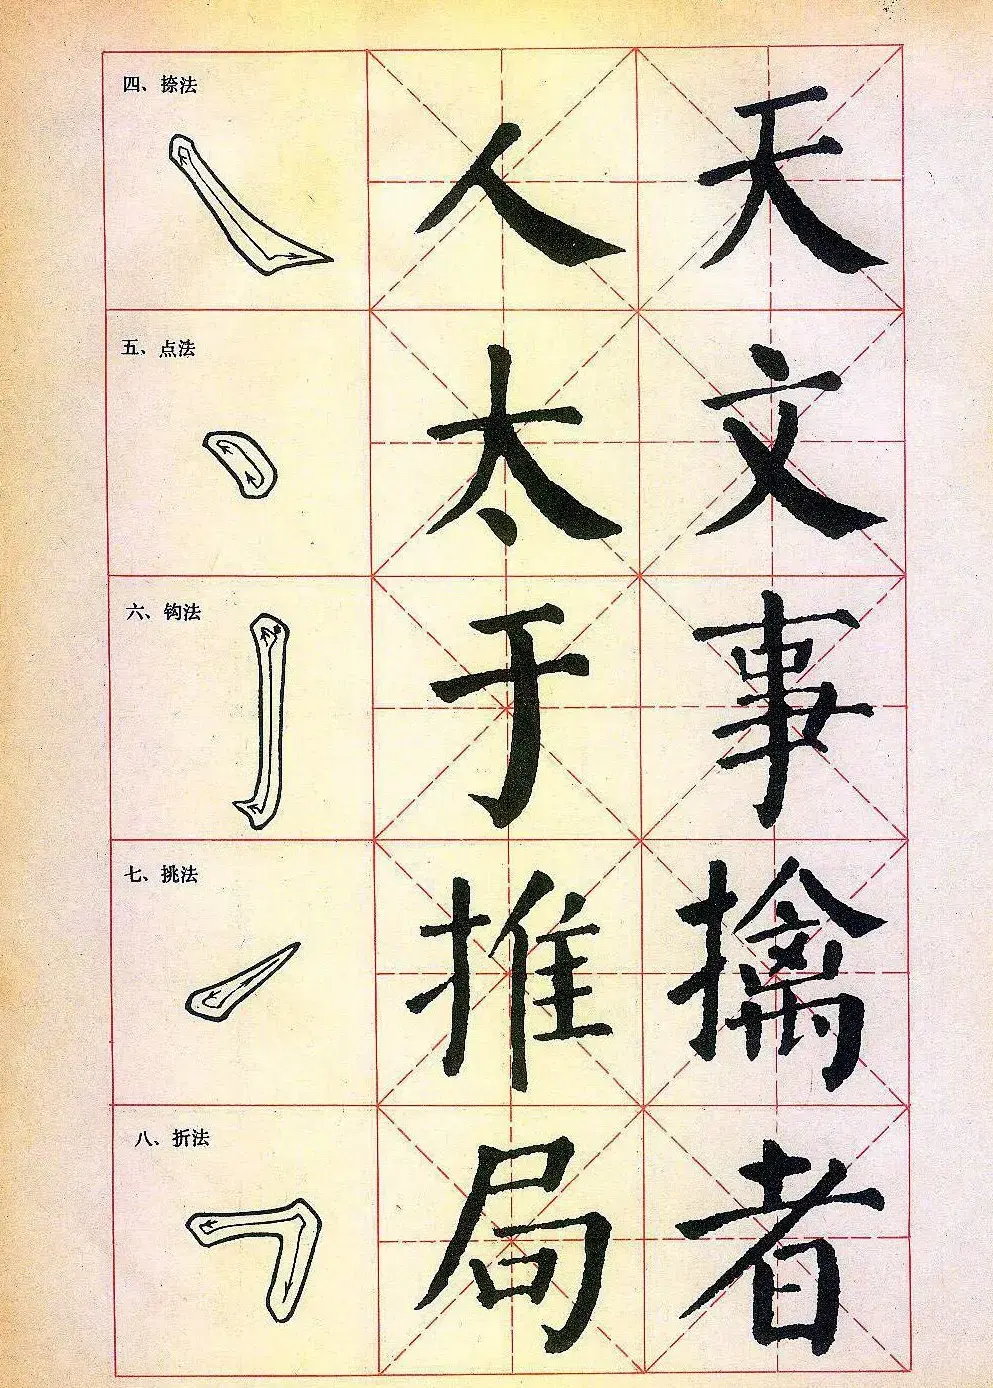 四、捺法
人 天
五、点法
太 文
六、钩法
于 事
七、挑法
推 擒
八、折法
局 者